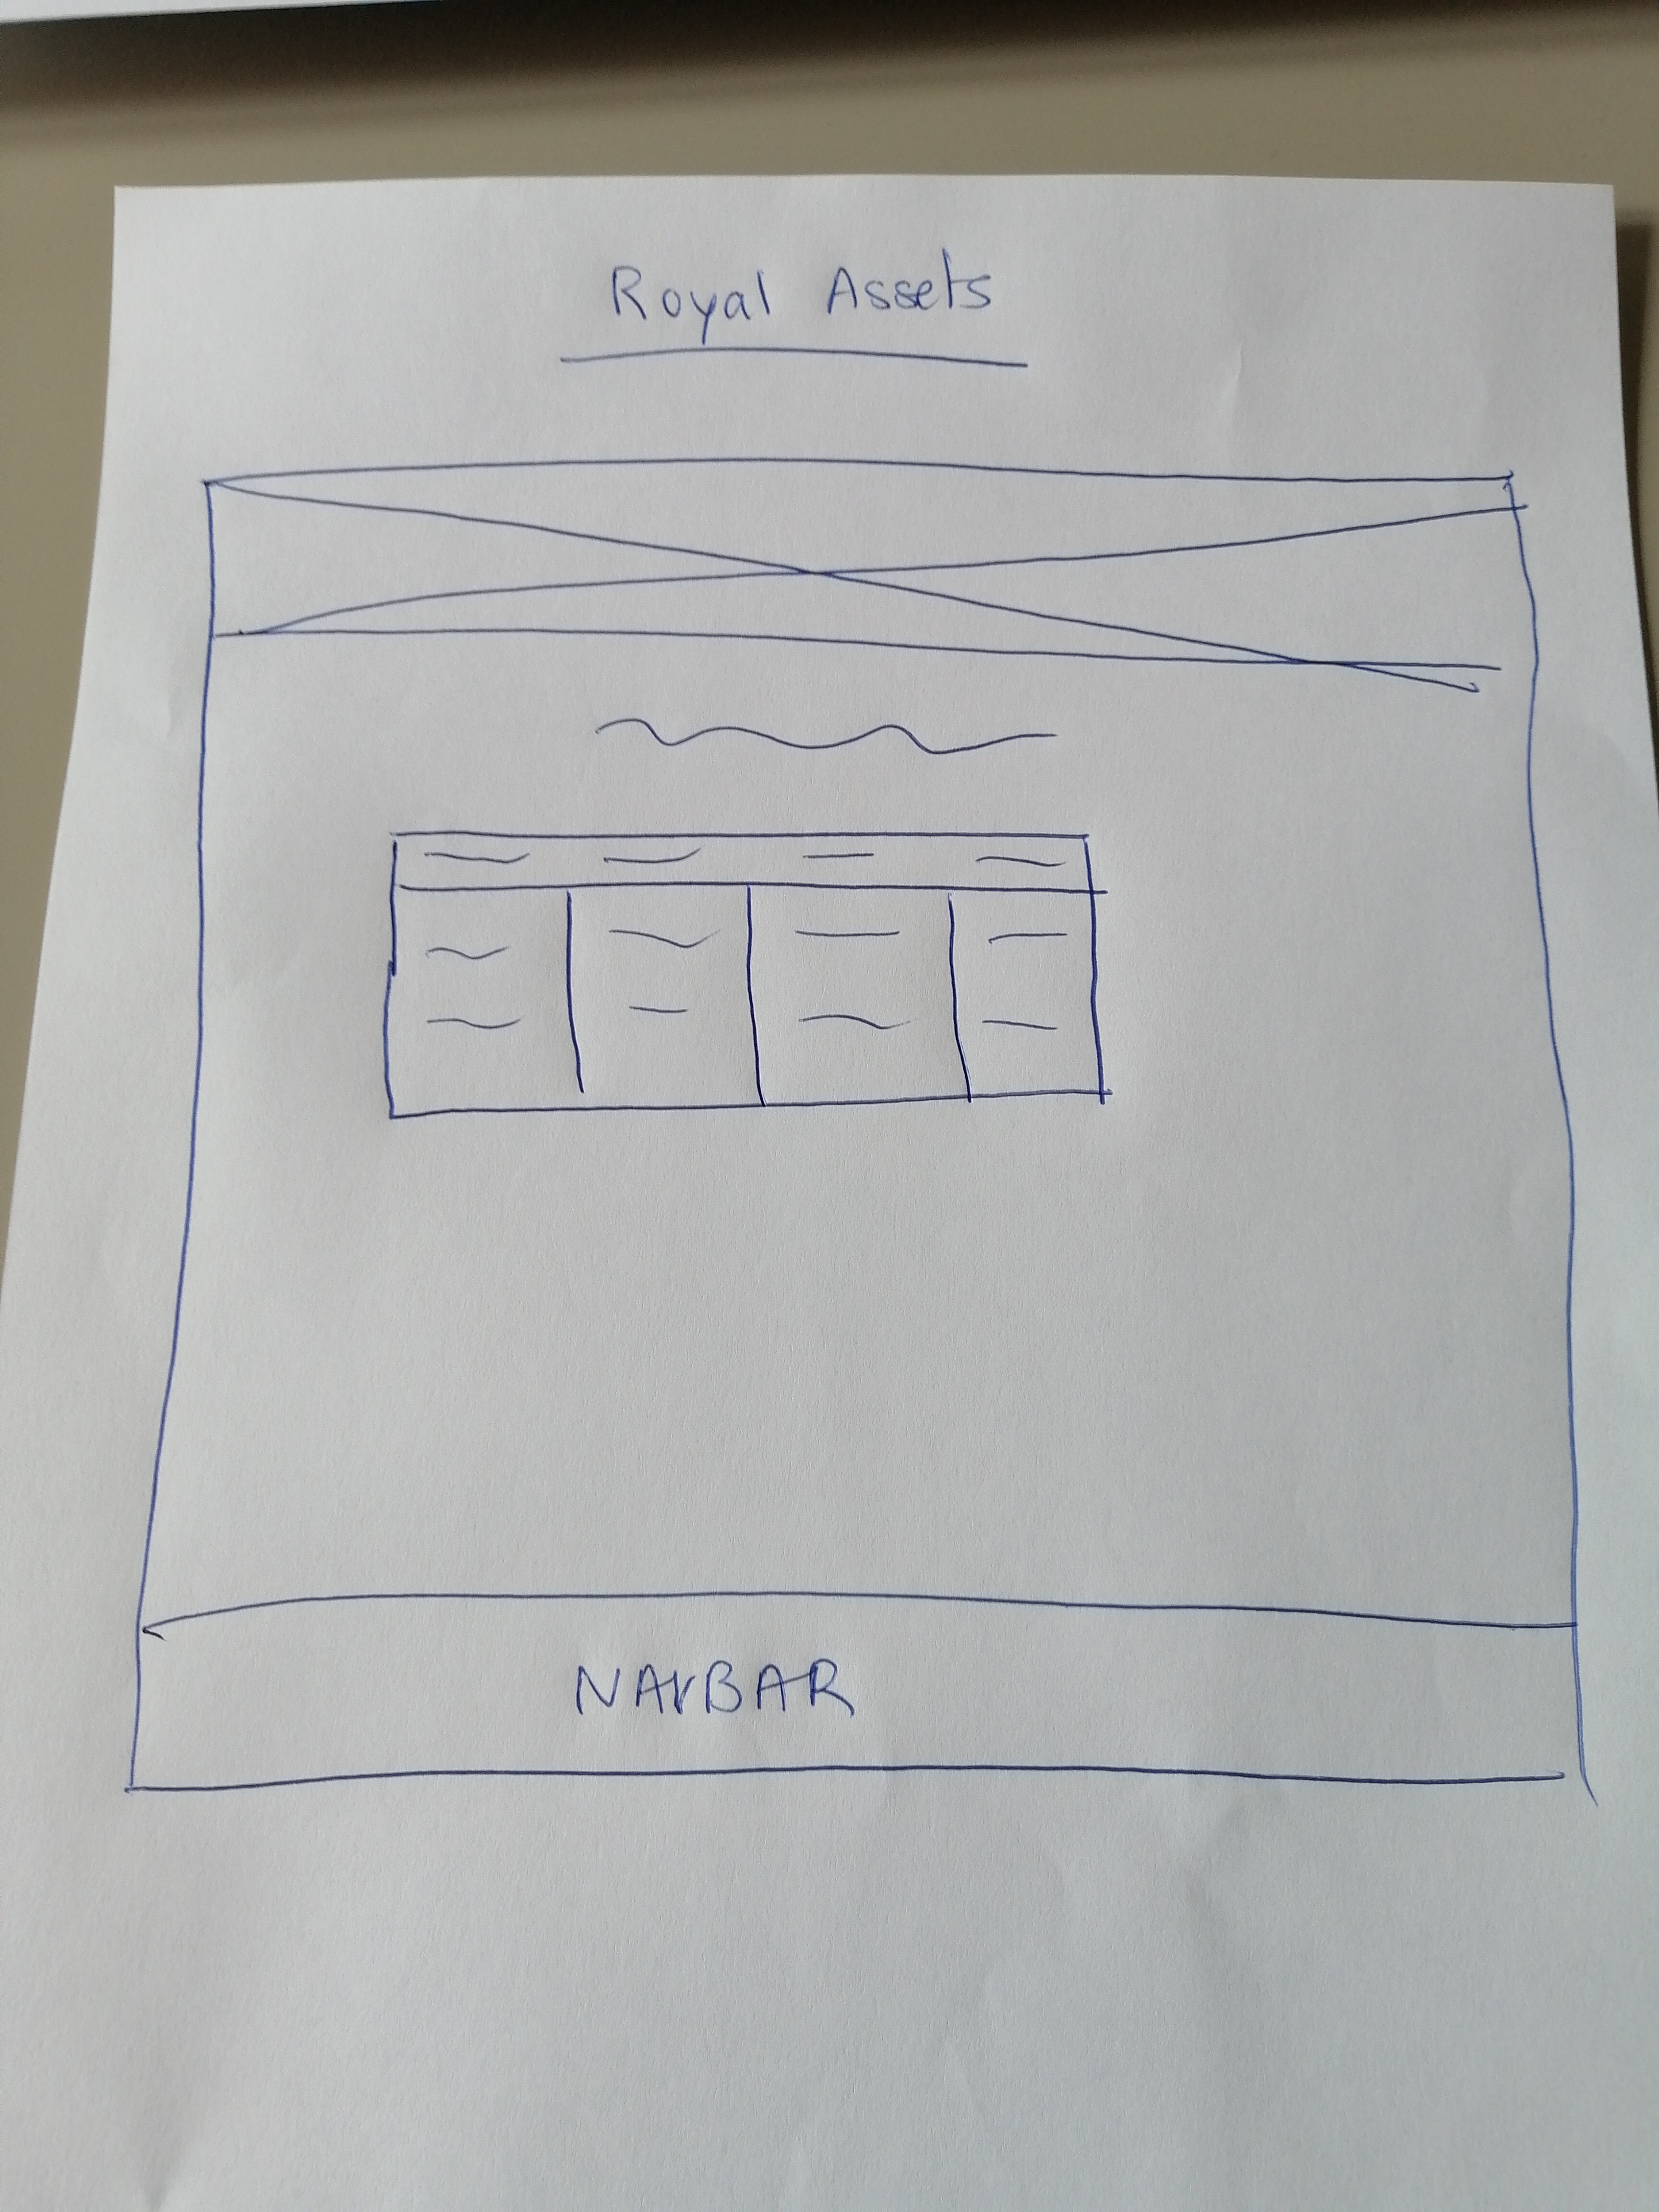 Royal Assets
NAVBAR